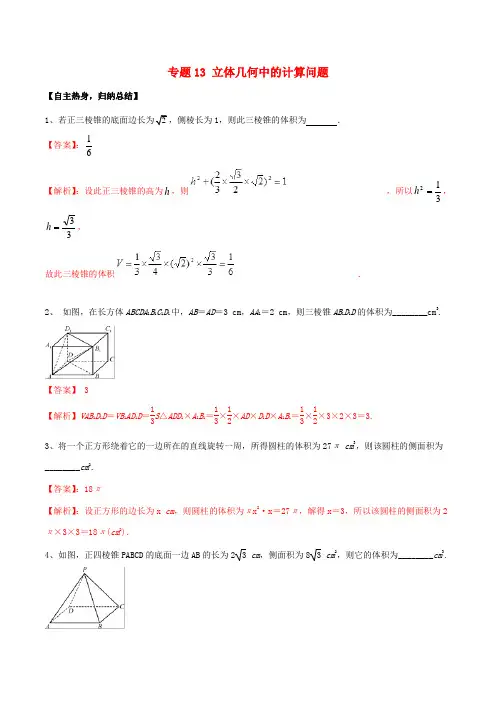 专题13 立体几何中的计算问题
【自主热身,归纳总结】
1、若正三棱锥的底面边长为√2,侧棱长为1,则此正三棱锥的体积为 .
【答案】:1/6
【解析】:设此正三棱锥的高为h,则h²+(2/3×√3/2×√2)²=1,所以h²=1/3,
h=√3/3,
故此三棱锥的体积V=1/3×√3/4×(√2)²×√3/3=1/6.
2、 如图,在长方体ABCDA₁B₁C₁D₁中,AB=AD=3 cm,AA₁=2 cm,则三棱锥AB₁D₁D的体积为________cm³.
D₁ C₁
A₁ B₁
D C
A B
【答案】 3
【解析】VAB₁D₁D=VB₁AD₁D=1/3S△ADD₁×A₁B₁=1/3×1/2×AD×D₁D×A₁B₁=1/3×1/2×3×2×3=3.
3、将一个正方形绕着它的一边所在的直线旋转一周,所得圆柱的体积为27π cm³,则该圆柱的侧面积为
________cm².
【答案】:18π
【解析】:设正方形的边长为x cm,则圆柱的体积为πx²·x=27π,解得x=3,所以该圆柱的侧面积为2
π×3×3=18π(cm²).
4、如图,正四棱锥PABCD的底面一边AB的长为2√3 cm,侧面积为8√3 cm²,则它的体积为________cm³.
P
D C
A B